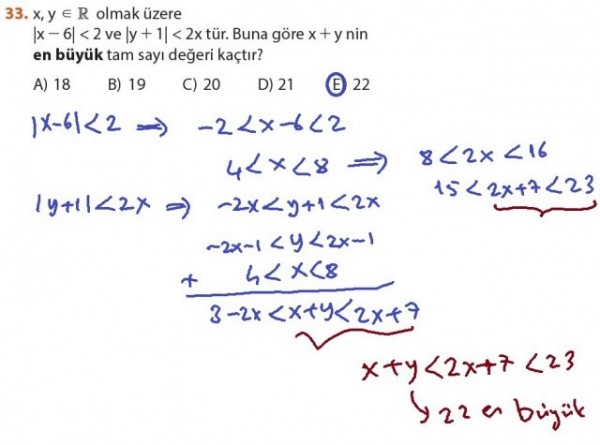 33. x, y ∈ ℝ olmak üzere
|x − 6| < 2 ve |y + 1| < 2x tür. Buna göre x + y nin
en büyük tam sayı değeri kaçtır?
A) 18 B) 19 C) 20 D) 21 E) 22
|x-6|<2 ⇒ -2<x-6<2
4<x<8 ⇒ 8<2x<16
15<2x+7<23
|y+1|<2x ⇒ -2x<y+1<2x
-2x-1<y<2x-1
+ 4<x<8
3-2x<x+y<2x+7
x+y<2x+7<23
↳ 22 en büyük